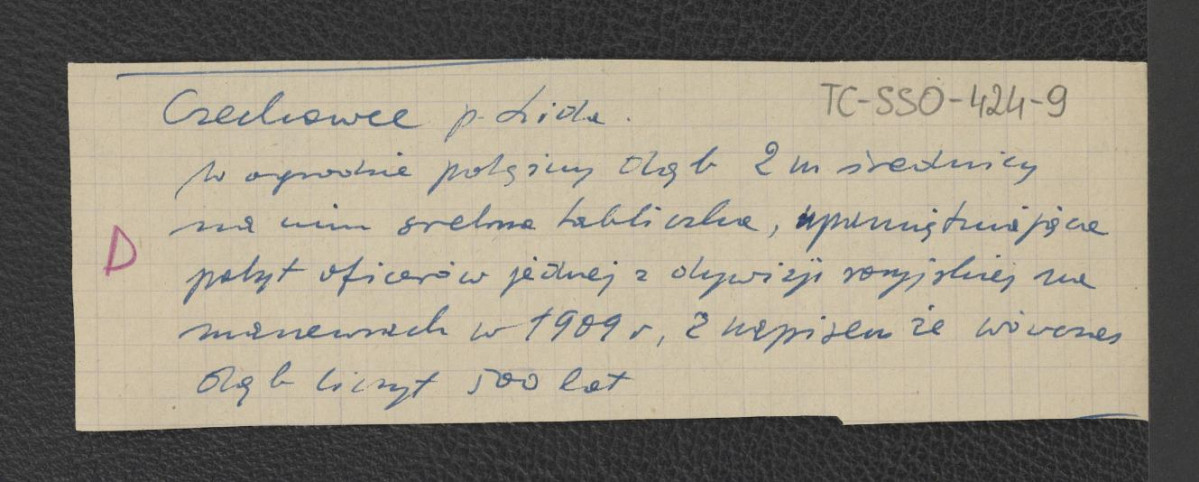 Czechowce p. Lida.
TC-SSO-424-9
w ogrodzie potężny dąb 2 m średnicy
na nim srebrna tabliczka, upamiętniająca
D
pobyt oficerów jednej z dywizji rosyjskiej na
manewrach w 1909 r, z napisem że wówczas
dąb liczył 500 lat